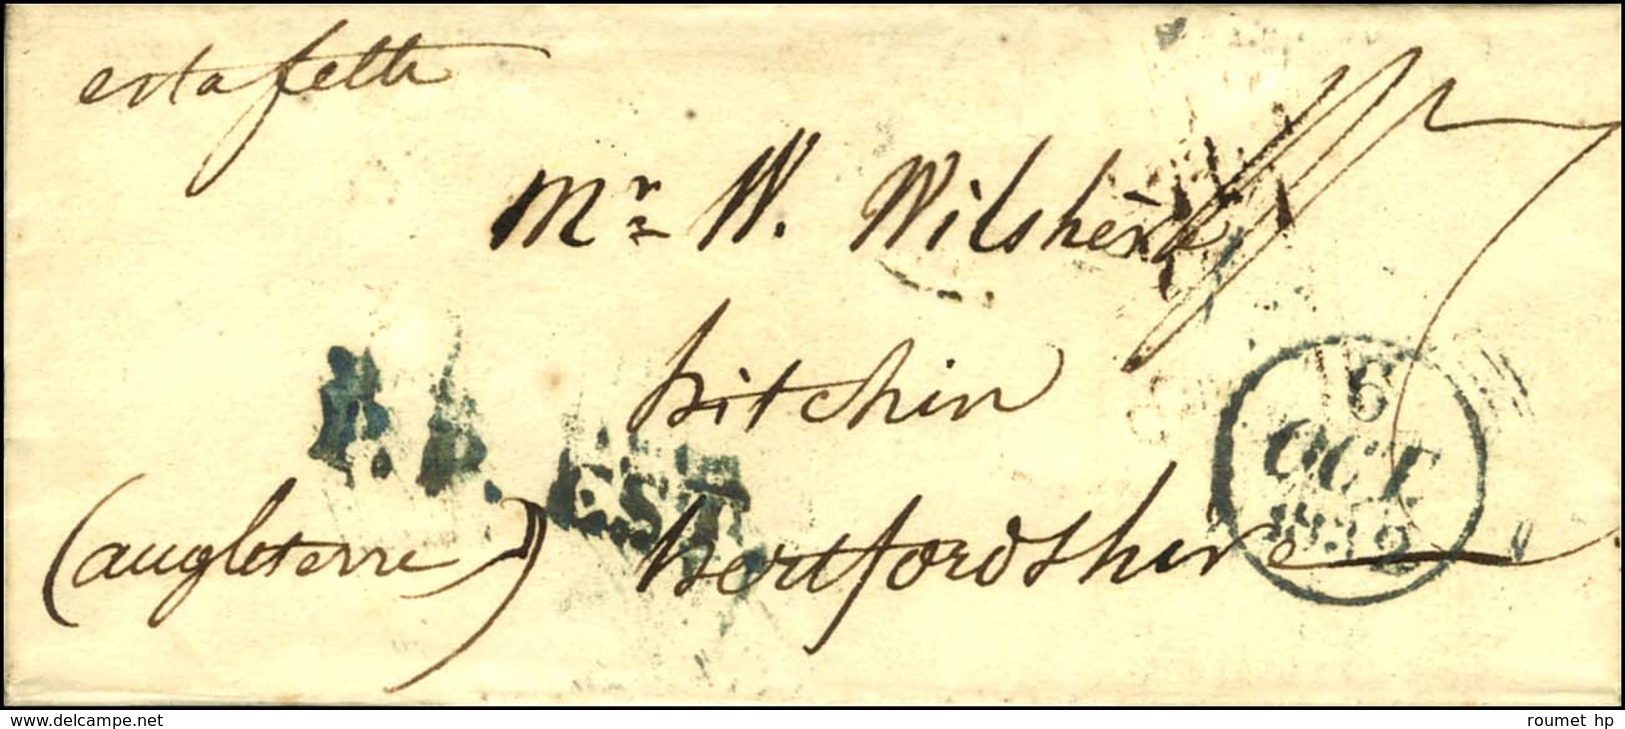 estafette
Mr W. Wilshere
hitchin
P.P. EST.
(angleterre) hertfordshire
6
OCT
1832
www.delcampe.net
roumet hp